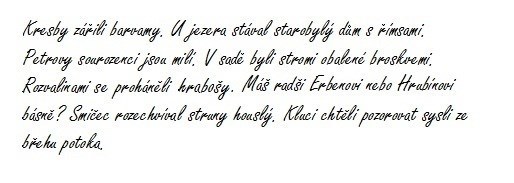 Kresby zářili barvamy. U jezera stával starobylý dům s římsami.
Petrovy sourozenci jsou milí. V sadě byli stromi obalené broskvemi.
Rozvalinami se proháněli hraboši. Máš radši Erbenovi nebo Hrubínovi
básně? Smičec rozechvíval struny houslý. Kluci chtěli pozorovat sysli ze
břehu potoka.